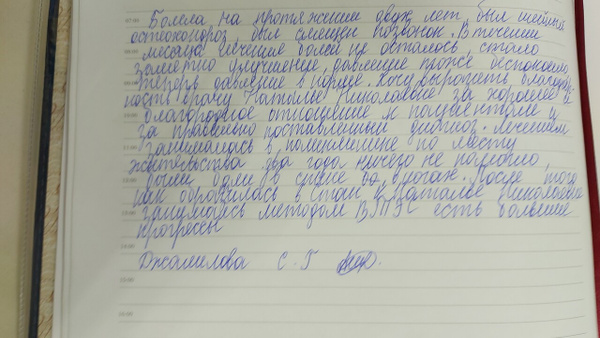 Болела на протяжении двух лет был шейный
остеохондроз, был смещен позвонок. В течении
месяца лечения болей не осталось, стало
заметно улучшение, давление тоже беспокоило
теперь давление в норме. Хочу выразить благодар-
ность врачу Наталье Николаевне за хорошее и
благородное отношение к пациентам и
за правильно поставленный диагноз. Лечением
занималась в поликлинике по месту
жительства два года ничего не помогло,
были боли в спине
в ногах. После того
как обратилась в
к Наталье Николаевне
занимаясь методом
есть большие
прогрессы
Джамилова С. Г